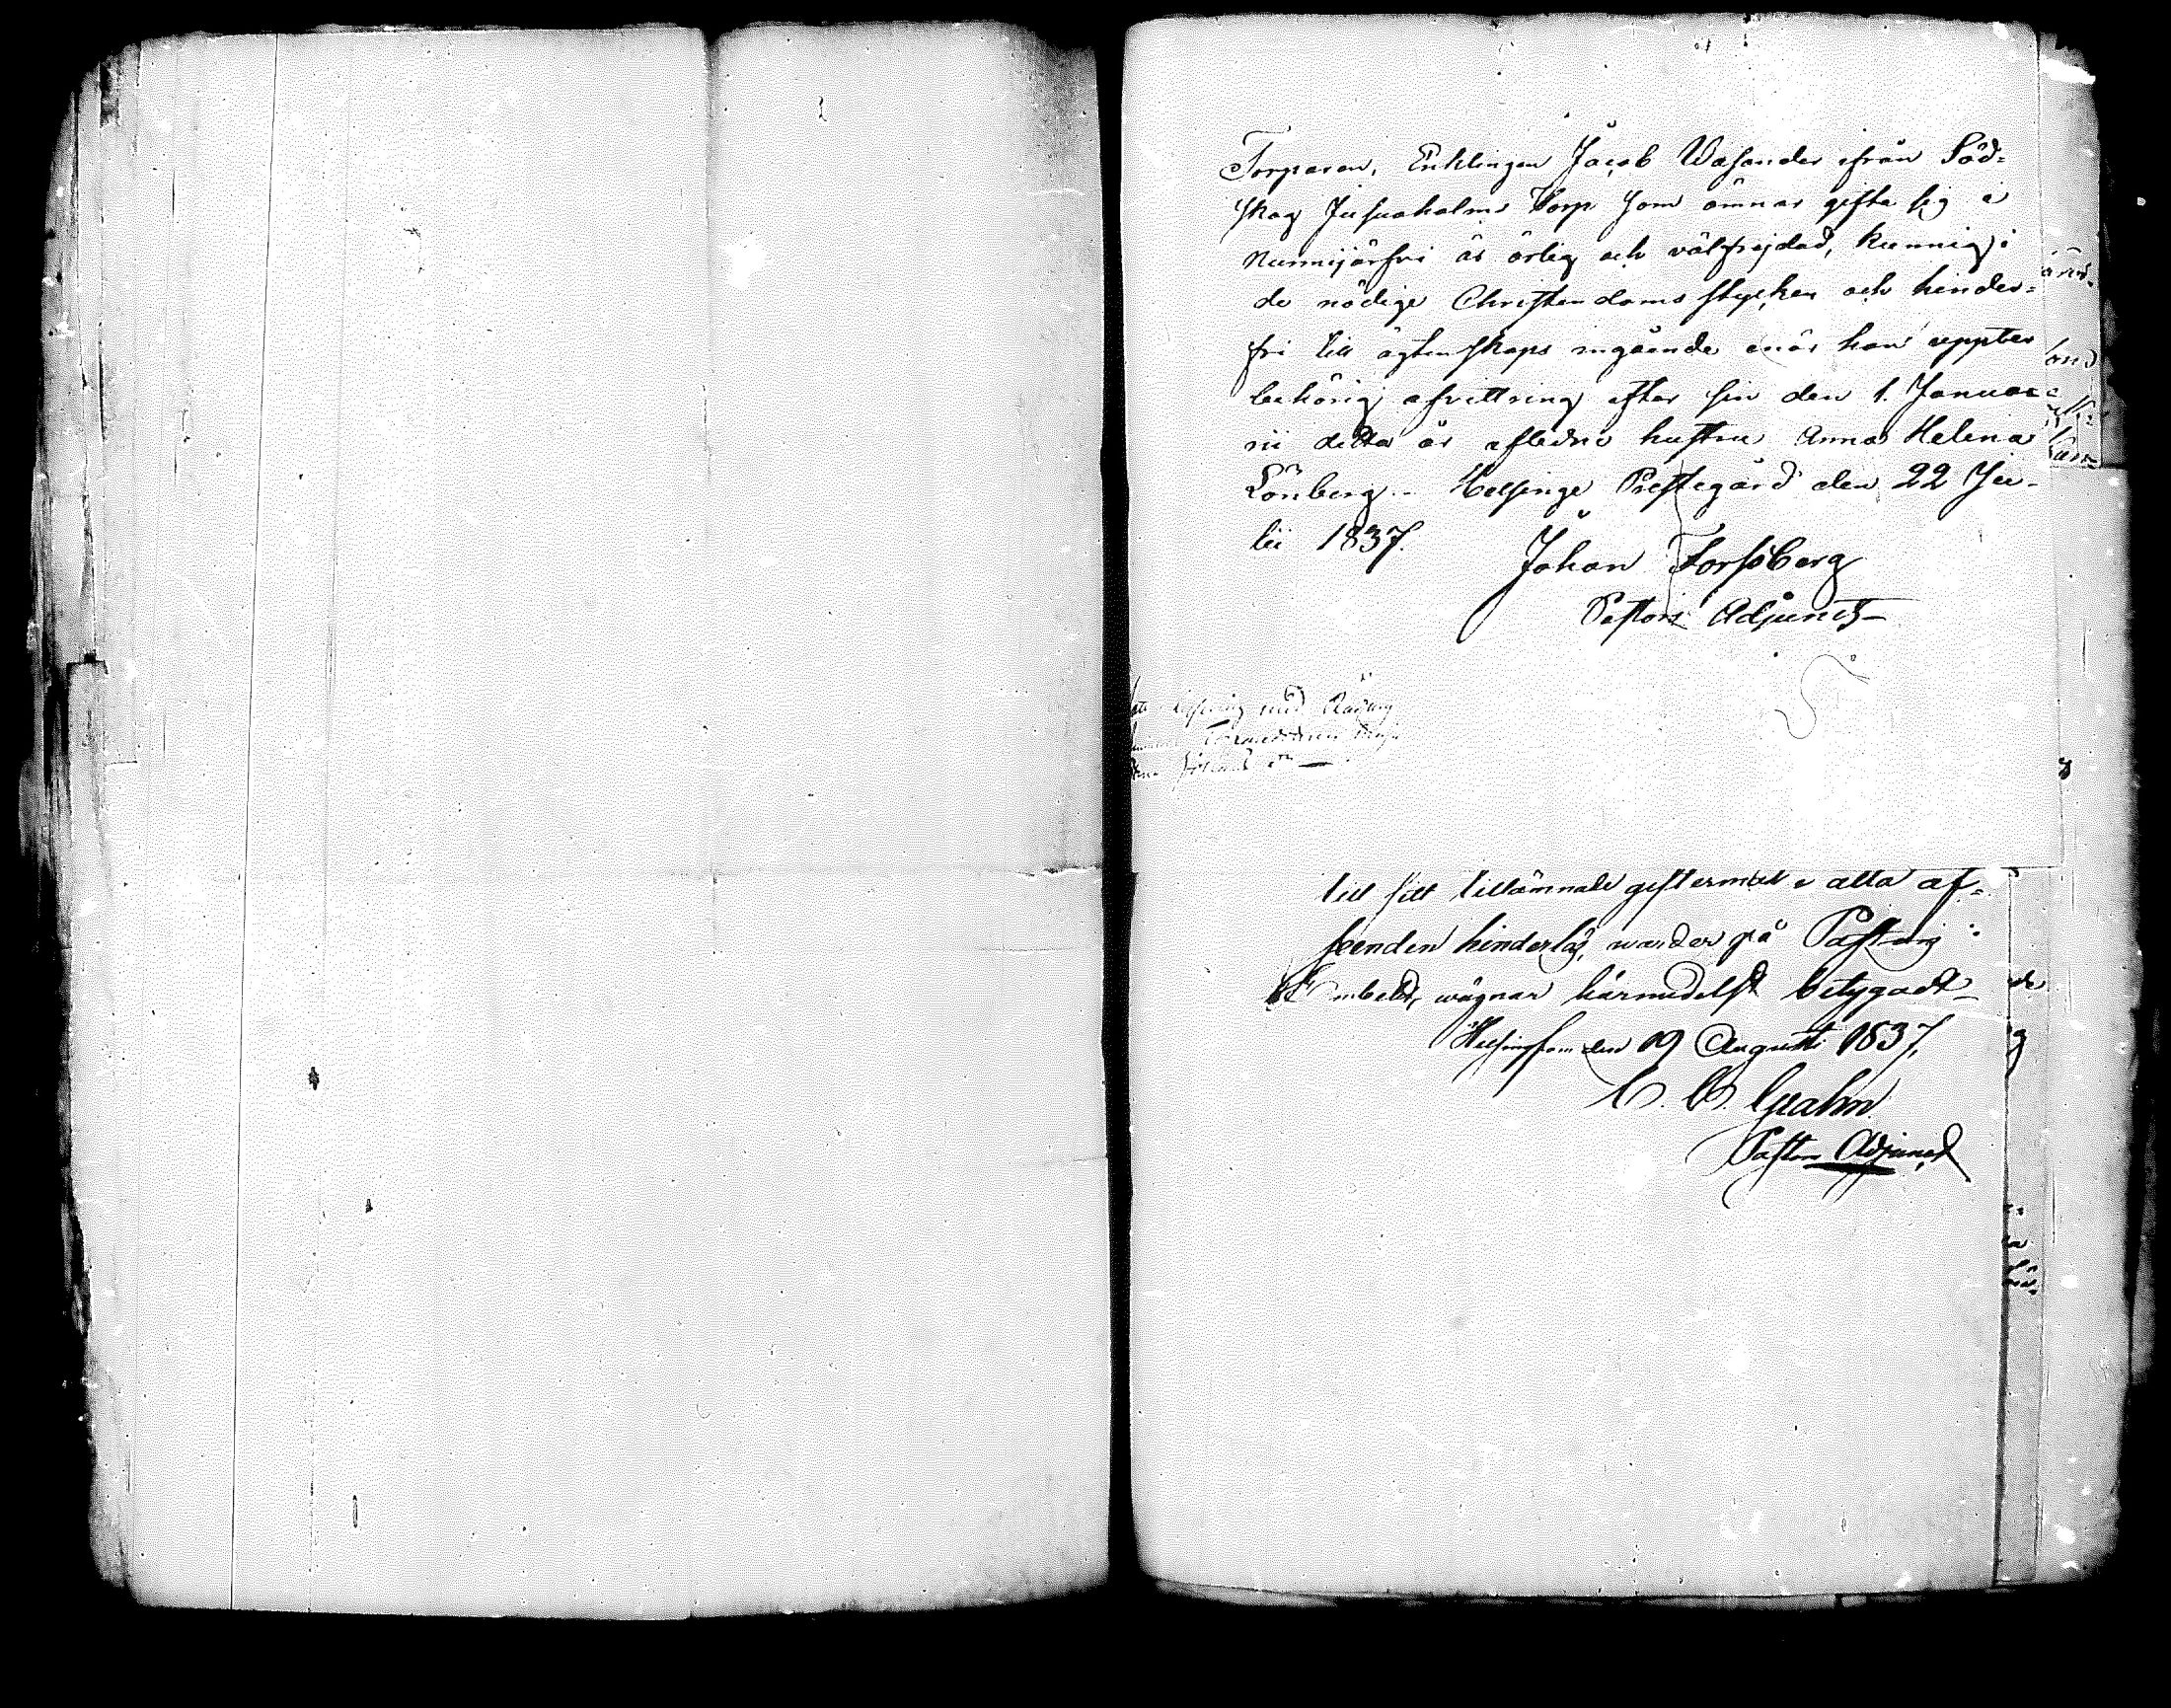 Torparen, Enklingen Jacob Wasander ifrån Söd=
skog Josuaholms Torp som ämnar gifta sig i
Nurmijärfvi är ärlig och välfrejdad, kunnig i
de nödige Christendoms stycken och hinder=
fri till ägtenskaps ingående enär han uppter
behörig afvittring efter sin den 1. Janua=
rii detta år aflidne hustru Anna Helena
Lönberg. Helsinge Prestegård den 22 Ju-
lii 1837.
Johan Forssberg
Pastors Adjunct
med
till sitt tillämnade giftermål i alla af=
seenden hinderlös, warder på Pastors
Embetets wägnar härmedelst betygadt
Helsingfors den 19 Augusti 1837,
Grahn
Pastors Adjunct